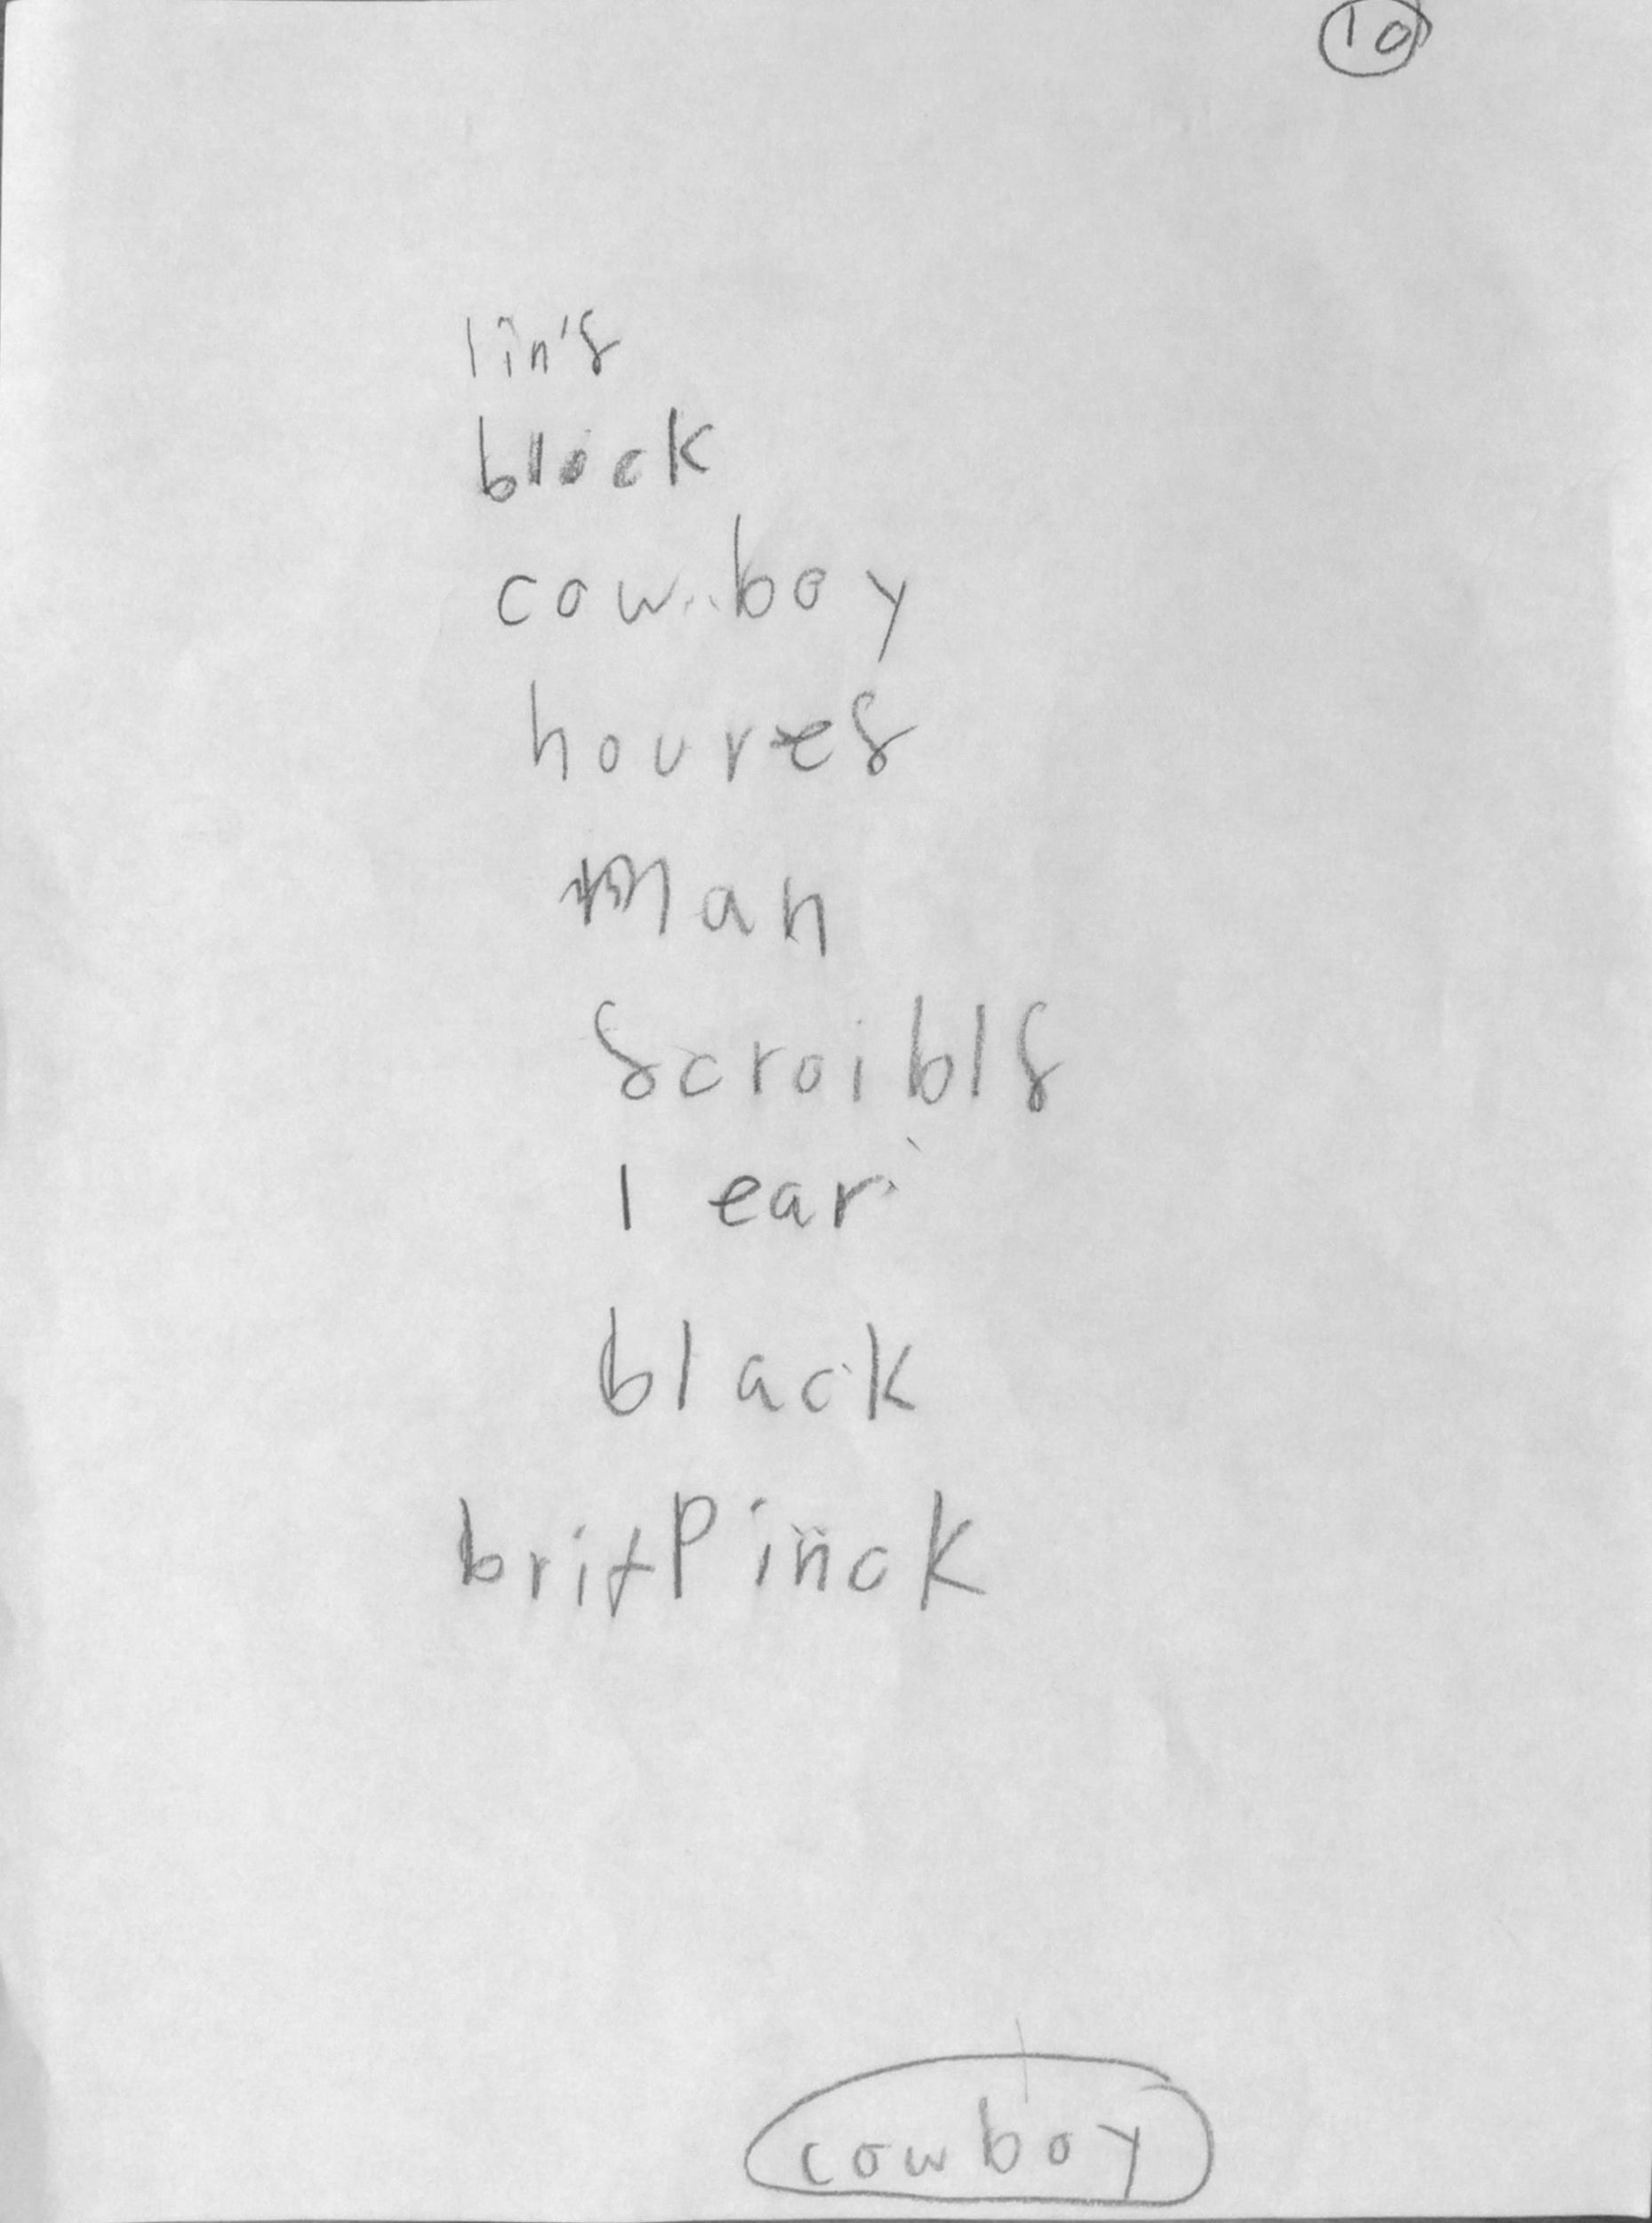 10
lin's
block
cowboy
houres
man
scroibls
1 ear
black
britPinck
cowboy